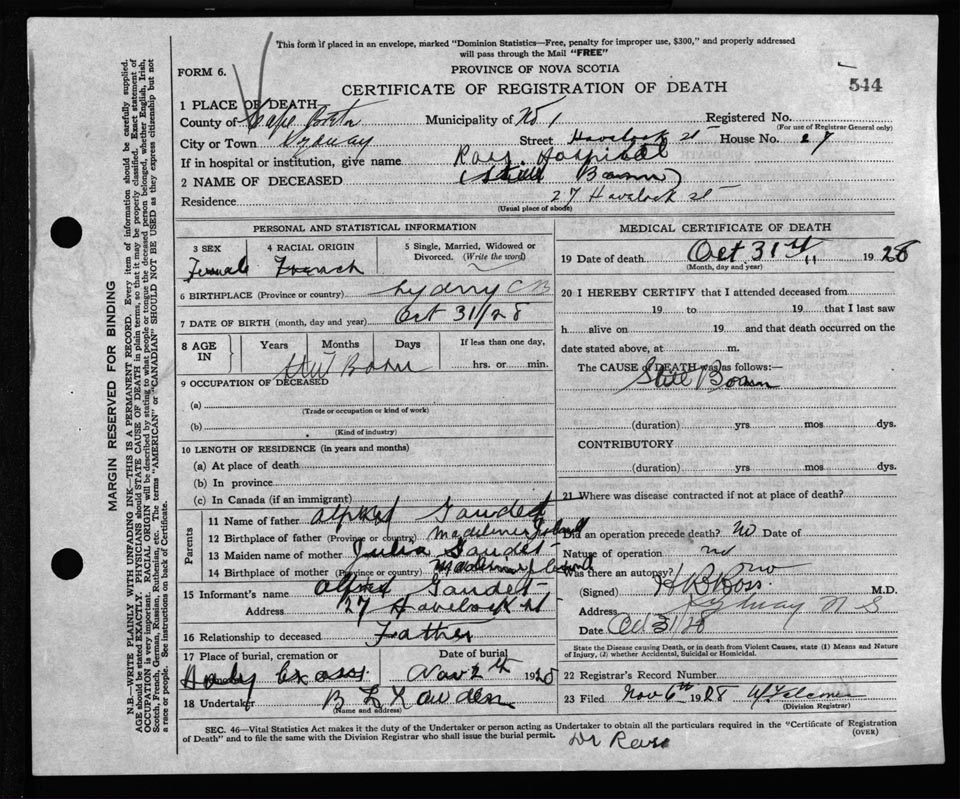 This form if placed in an envelope, marked "Dominion Statistics—Free, penalty for improper use, $300," and properly addressed
will pass through the Mail "FREE"
FORM 6.
PROVINCE OF NOVA SCOTIA
544
CERTIFICATE OF REGISTRATION OF DEATH
1 PLACE OF DEATH
County of Cape Breton Municipality of No 1 Registered No.
(For use of Registrar General only)
City or Town Sydney Street Havelock st House No. 27
If in hospital or institution, give name Ross Hospital
2 NAME OF DECEASED (Still Born)
Residence 27 Havelock st
(Usual place of abode)
PERSONAL AND STATISTICAL INFORMATION
3 SEX 4 RACIAL ORIGIN 5 Single, Married, Widowed or
Divorced. (Write the word)
Female French
6 BIRTHPLACE (Province or country) Sydney C B
7 DATE OF BIRTH (month, day and year) Oct 31/28
8 AGE IN Years Months Days If less than one day,
hrs. or min.
Still Born
9 OCCUPATION OF DECEASED
(a)
(Trade or occupation or kind of work)
(b)
(Kind of industry)
10 LENGTH OF RESIDENCE (in years and months)
(a) At place of death
(b) In province
(c) In Canada (if an immigrant)
Parents
11 Name of father Gaudet
12 Birthplace of father (Province or country)
13 Maiden name of mother Julia Gaudet
14 Birthplace of mother (Province or country)
15 Informant's name Gaudet
Address 27 Havelock st
16 Relationship to deceased Father
17 Place of burial, cremation or Date of burial
Holy Cross Nov 2th 1928
18 Undertaker
(Name and address)
MEDICAL CERTIFICATE OF DEATH
19 Date of death Oct 31st 1928
(Month, day and year)
20 I HEREBY CERTIFY that I attended deceased from
19 to 19 that I last saw
h alive on 19 and that death occurred on the
date stated above, at m.
The CAUSE of DEATH was as follows:—
Still Born
(duration) yrs mos dys.
CONTRIBUTORY
(duration) yrs. mos. dys.
21 Where was disease contracted if not at place of death?
Did an operation precede death? no Date of
Nature of operation no
Was there an autopsy? no
(Signed) H B Ross M.D.
Address Sydney N S
Date Oct 31/28
State the Disease causing Death, or in death from Violent Causes, state (1) Means and Nature
of Injury, (2) whether Accidental, Suicidal or Homicidal.
22 Registrar's Record No.
23 Filed Nov 6th 1928 W Falconer
(Division Registrar)
SEC. 46—Vital Statistics Act makes it the duty of the Undertaker or person acting as Undertaker to obtain all the particulars required in the "Certificate of Registration
of Death" and to file the same with the Division Registrar who shall issue the burial permit.
(OVER)
MARGIN RESERVED FOR BINDING
N.B.—WRITE PLAINLY WITH UNFADING INK—THIS IS A PERMANENT RECORD. Every item of information should be carefully supplied.
AGE should be stated EXACTLY. PHYSICIANS should STATE CAUSE OF DEATH in plain terms, so that it may be properly classified. Exact statement of
OCCUPATION is very important. RACIAL ORIGIN will be described by stating to what people or tongue the deceased person belonged, whether English, Irish,
Scotch, French, German, Russian, Ruthenian, etc. The terms "AMERICAN" or "CANADIAN" SHOULD NOT BE USED as they express citizenship but not
a race or people. See instructions on back of Certificate.